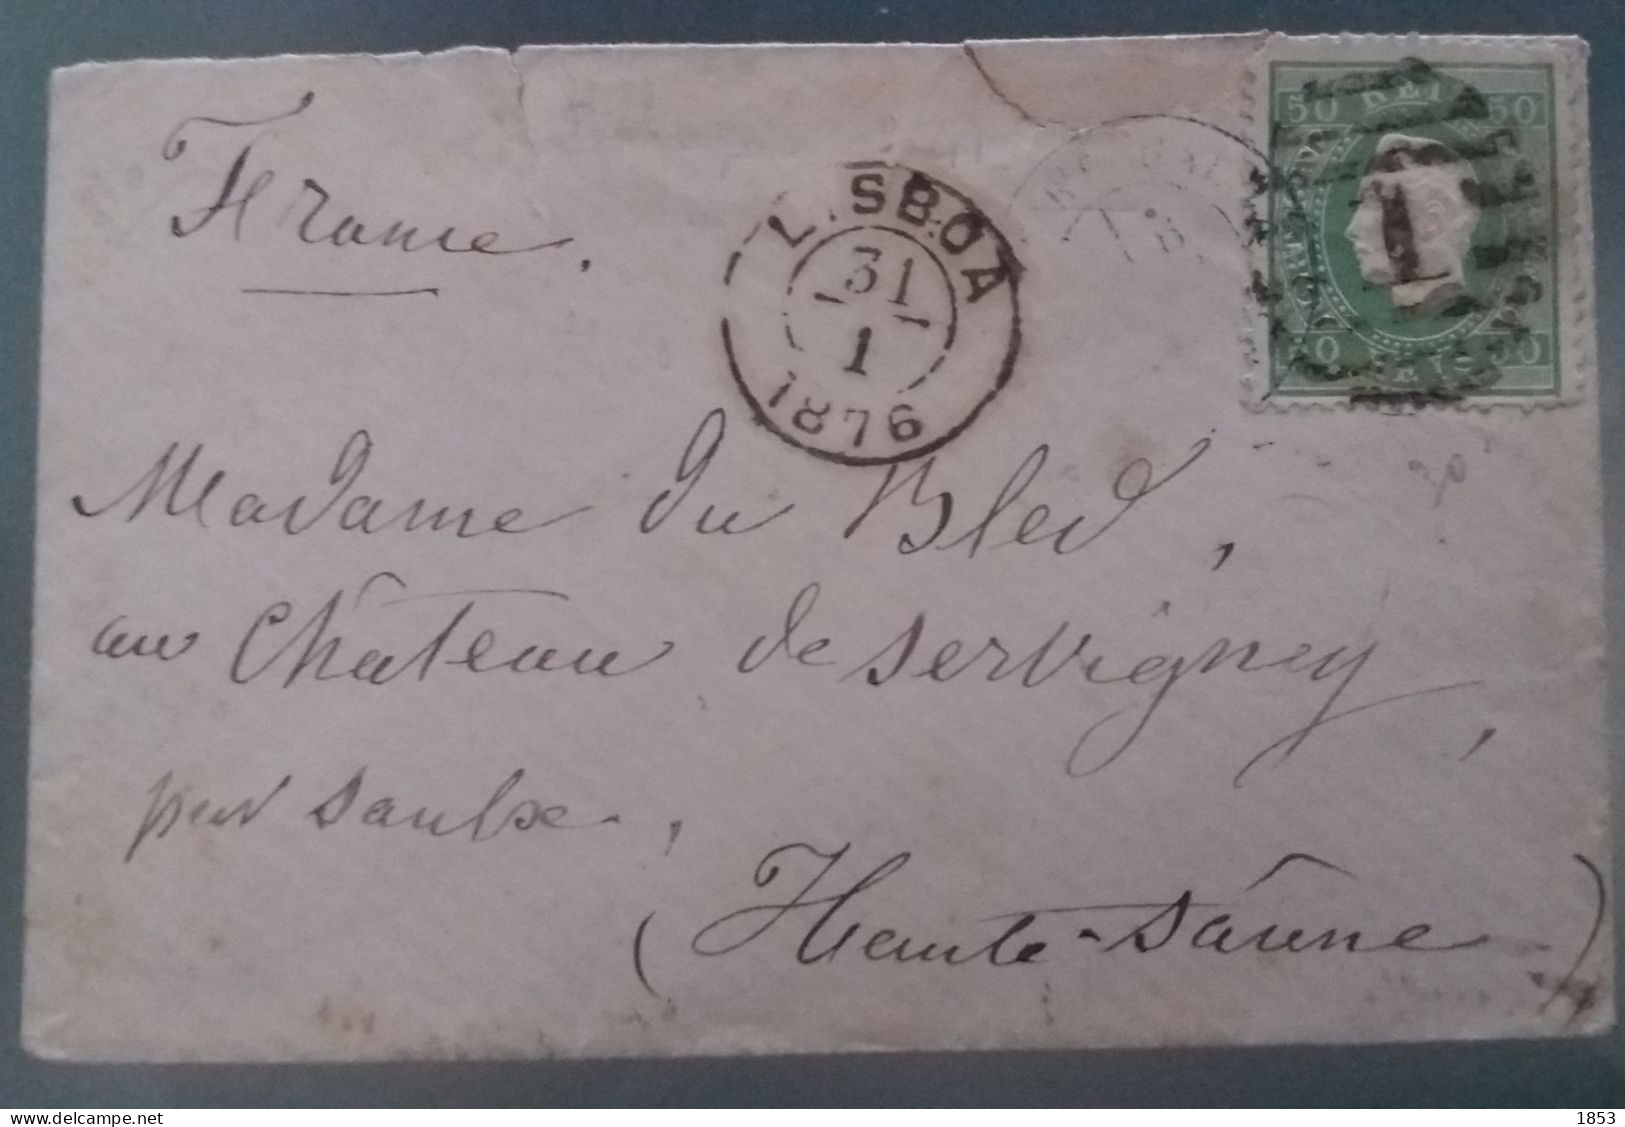 France.
LISBOA
31
1
1876
50 REIS 50
CORREIO
1
Madame du Bled,
au Château de Servigney,
par Saulx.,
(Haute-Saûne)
delcampe.net
1853